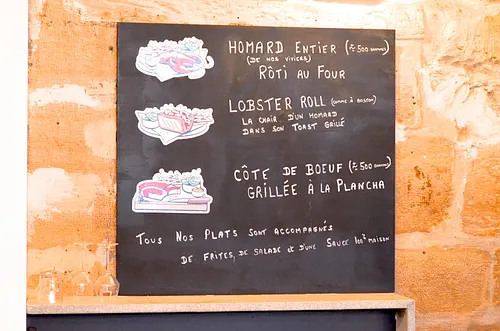 HOMARD ENTIER (± 500 grammes)
(DE NOS VIVIERS)
RÔTI AU FOUR
LOBSTER ROLL (COMME À BOSTON)
LA CHAIR D'UN HOMARD
DANS SON TOAST GRILLÉ
CÔTE DE BOEUF (± 500 grammes)
GRILLÉE À LA PLANCHA
TOUS NOS PLATS SONT ACCOMPAGNÉS
DE FRITES, DE SALADE et D'UNE SAUCE 100% MAISON